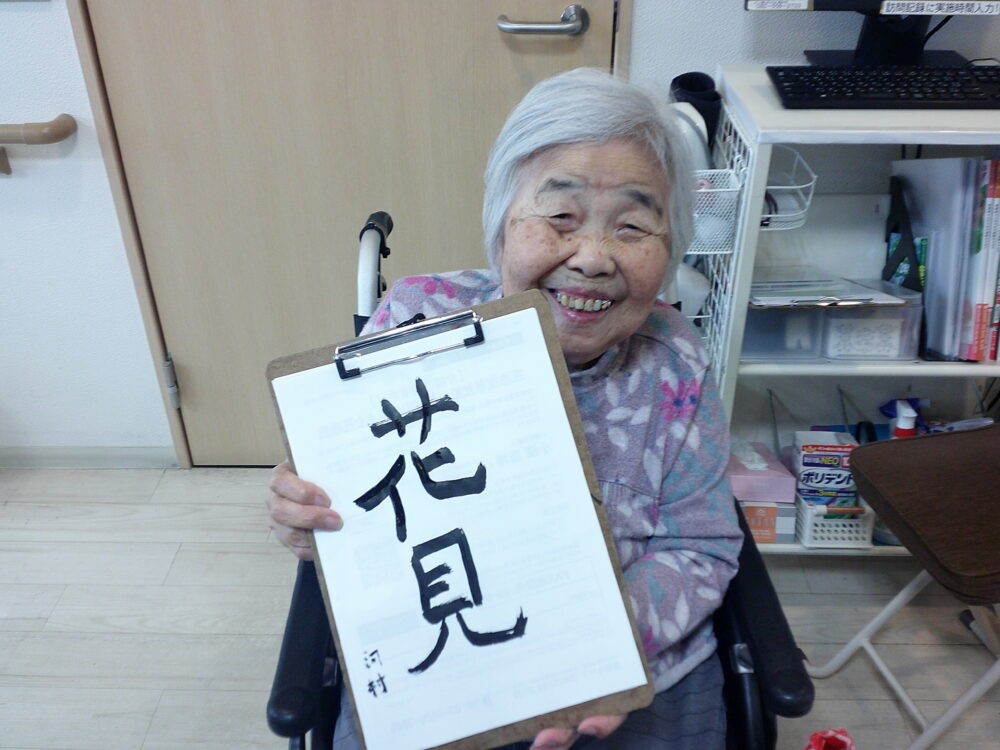 訪問記録に実施時間入力!
花見
河村
NEO
ポリデント